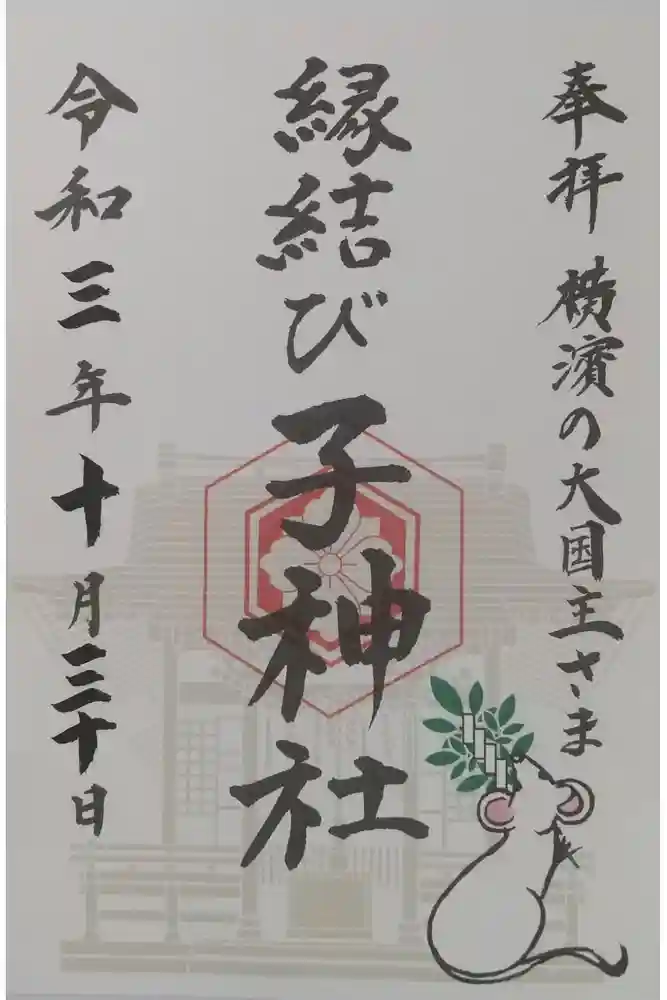 奉拝 横濱の大国主さま
縁結び子神社
令和三年十月三十日